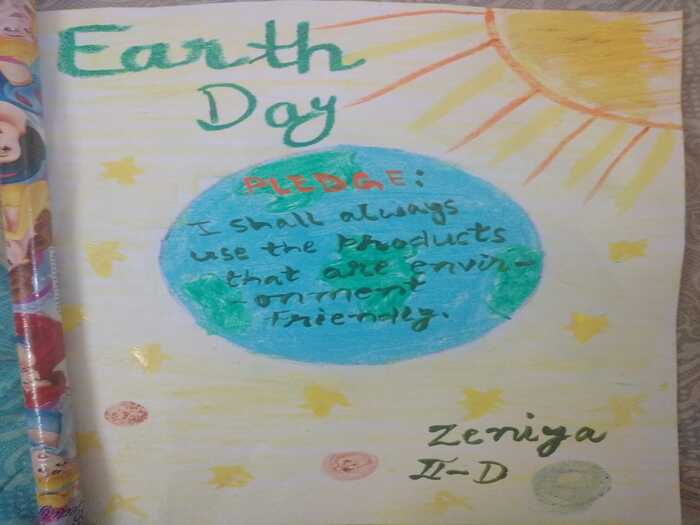 Earth
Day
PLEDGE:
I shall always
use the products
that are envir-
-onment
Friendly.
Zeniya
II-D